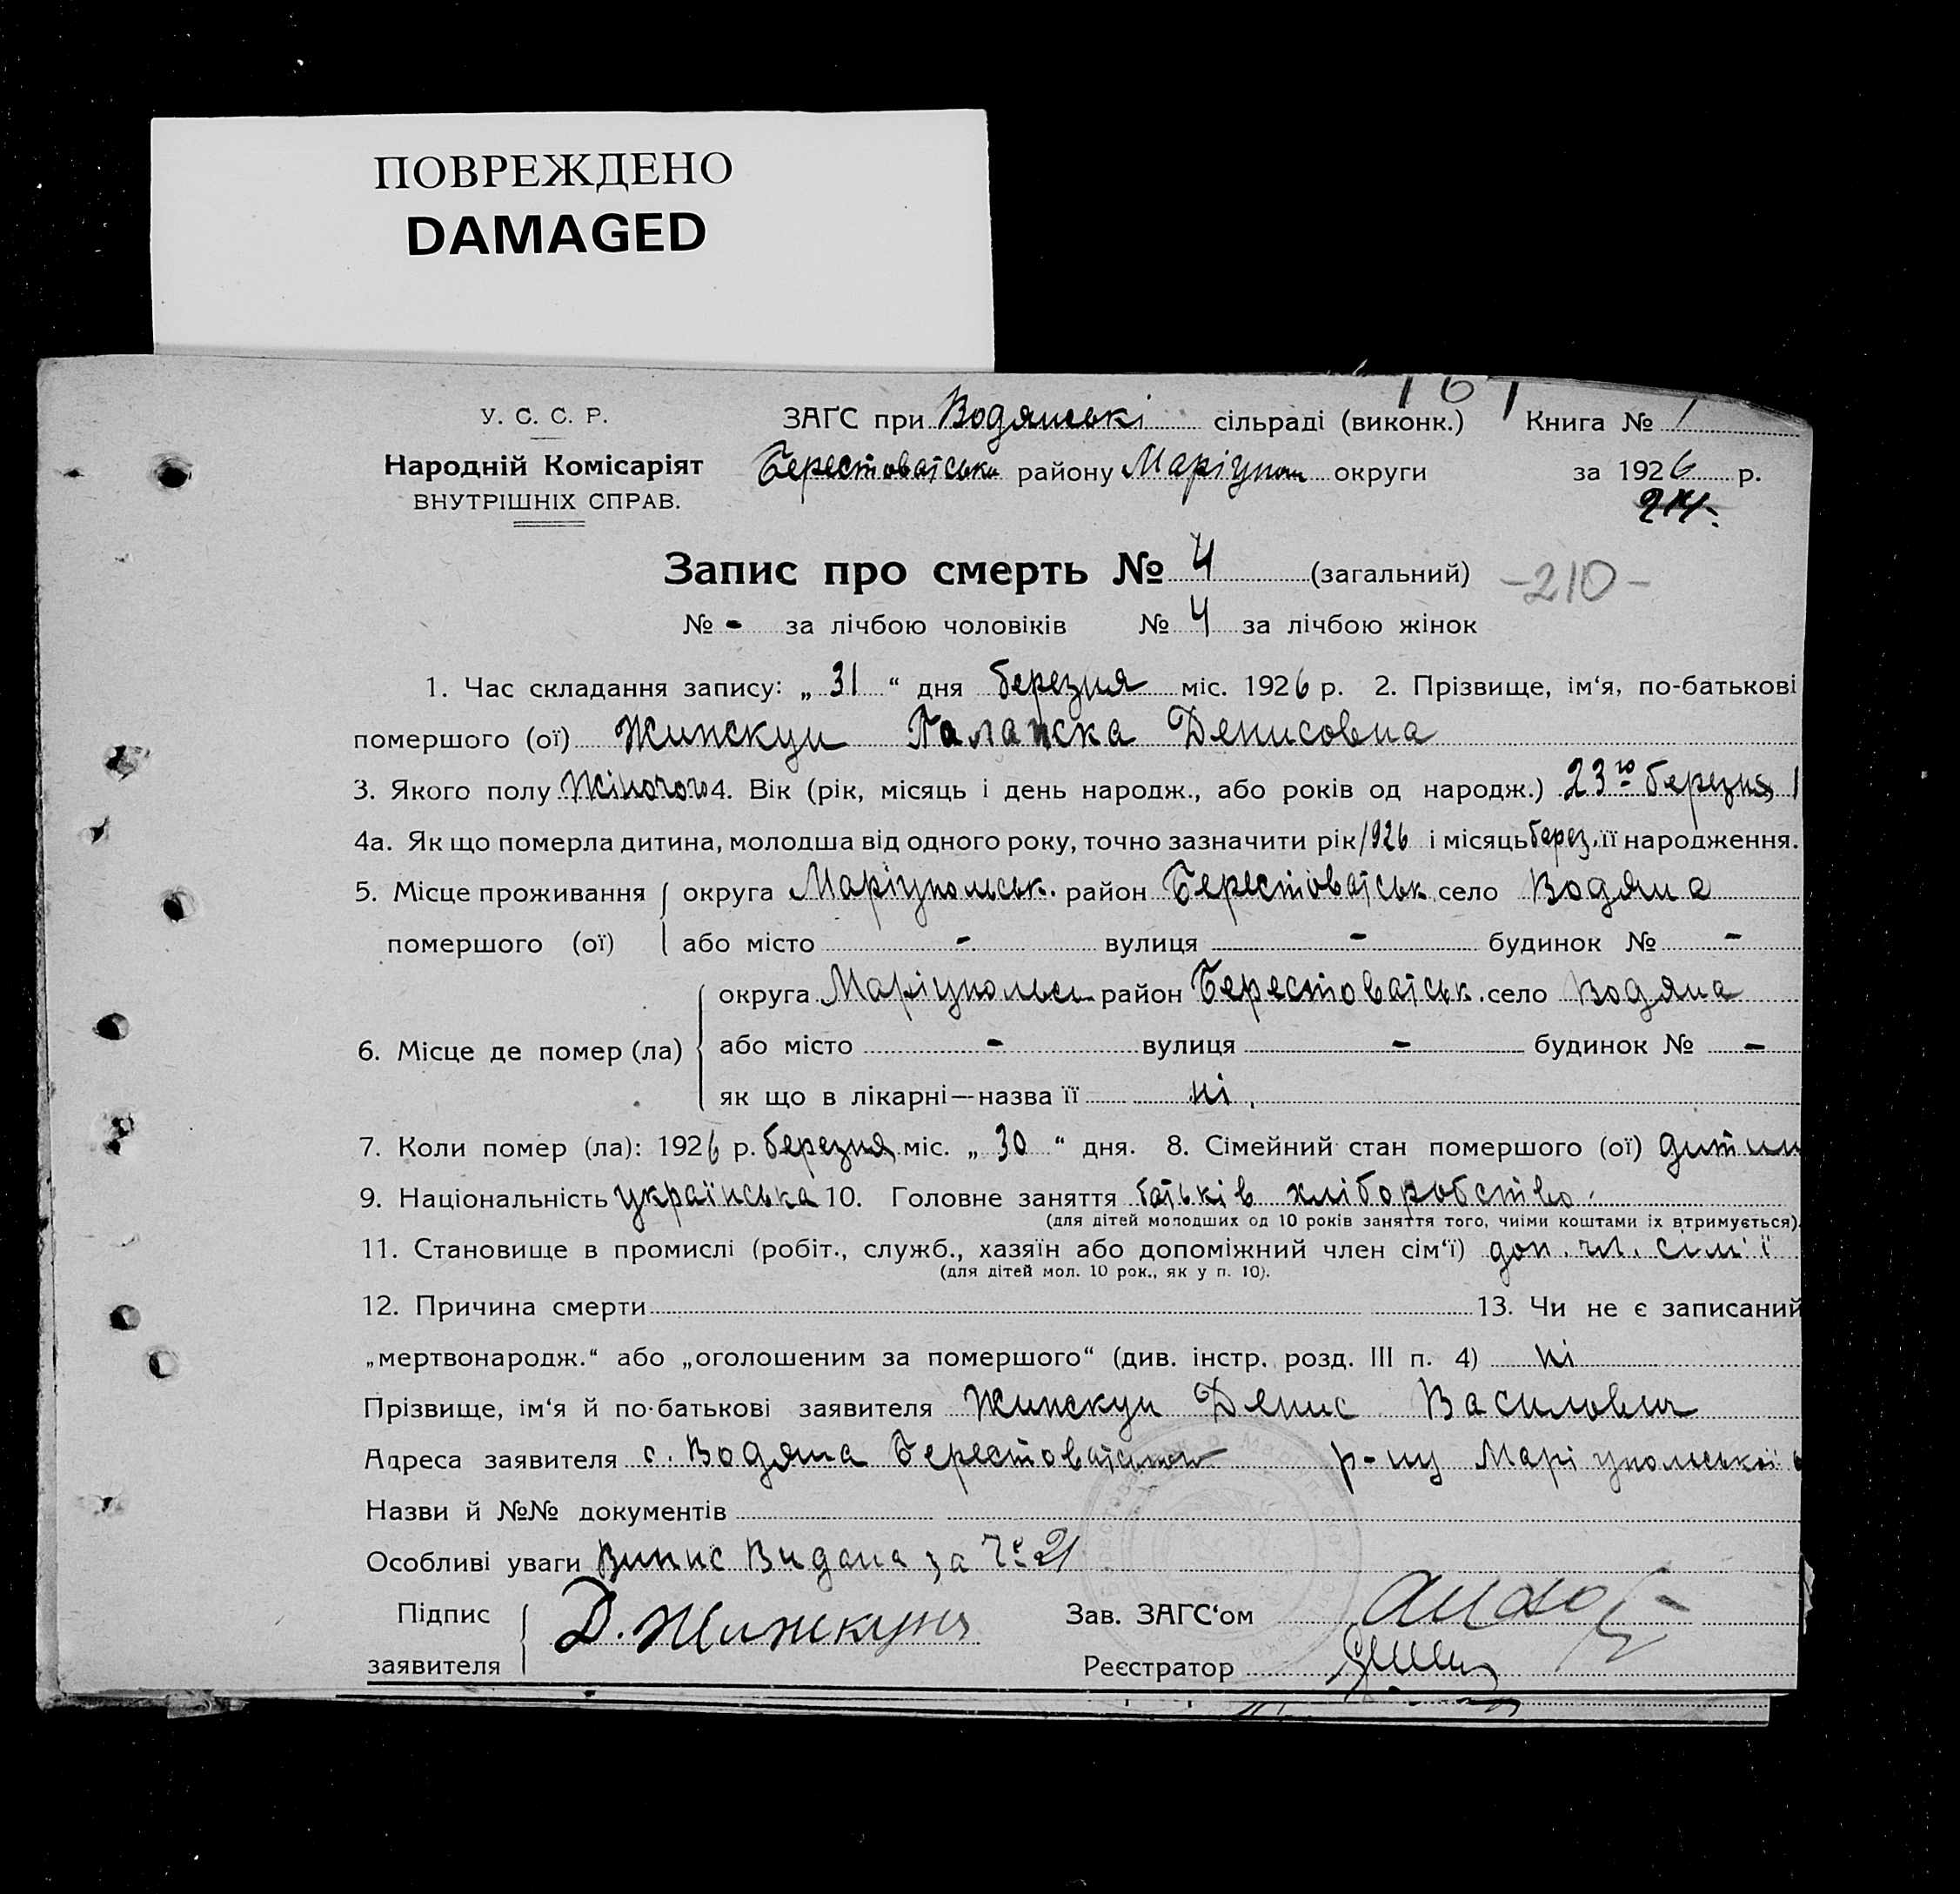 ПОВРЕЖДЕНО
DAMAGED
У. С. С. Р.
Народній Комісаріят
ВНУТРІШНІХ СПРАВ.
ЗАҐС при Водянські сільраді (виконк.) Книга № 1
району Маріуп округи за 1926 р.
Запис про смерть № 4 (загальний) -210-
№ - за лічбою чоловіків № 4 за лічбою жінок
1. Час складання запису: „ 31 “ дня березня міс. 1926 р. 2. Прізвище, ім‘я, по-батькові
помершого (ої) Денисовна
3. Якого полу Жіночого 4. Вік (рік, місяць і день народж., або років од народж.) 23го березня 1
4а. Як що померла дитина, молодша від одного року, точно зазначити рік 1926 і місяць берез. її народження.
5. Місце проживання округа Маріупольськ. район Берестоватськ. село Водяна
помершого (ої) або місто - вулиця - будинок № -
6. Місце де помер (ла) округа Маріупольськ район Берестоватськ. село Водяна
або місто - вулиця - будинок № -
як що в лікарні—назва її ні.
7. Коли помер (ла): 1926 р. березня міс. „ 30 “ дня. 8. Сімейний стан помершого (ої) дитин
9. Національність українська 10. Головне заняття батьків хліборобство.
(для дітей молодших од 10 років заняття того, чиїми коштами їх втримується).
11. Становище в промислі (робіт., служб., хазяїн або допоміжний член сім‘ї) доп. чл. сім'ї
(для дітей мол. 10 рок., як у п. 10).
12. Причина смерти 13. Чи не є записаний
„мертвонародж.“ або „оголошеним за помершого“ (див. інстр. розд. III п. 4) ні
Прізвище, ім‘я й по-батькові заявителя Денис Василович
Адреса заявителя с. Водяна р-ну Маріупольської о
Назви й №№ документів
Особливі уваги Випис Видана за № 21
Підпис заявителя Д. Зав. ЗАҐС‘ом
Реєстратор